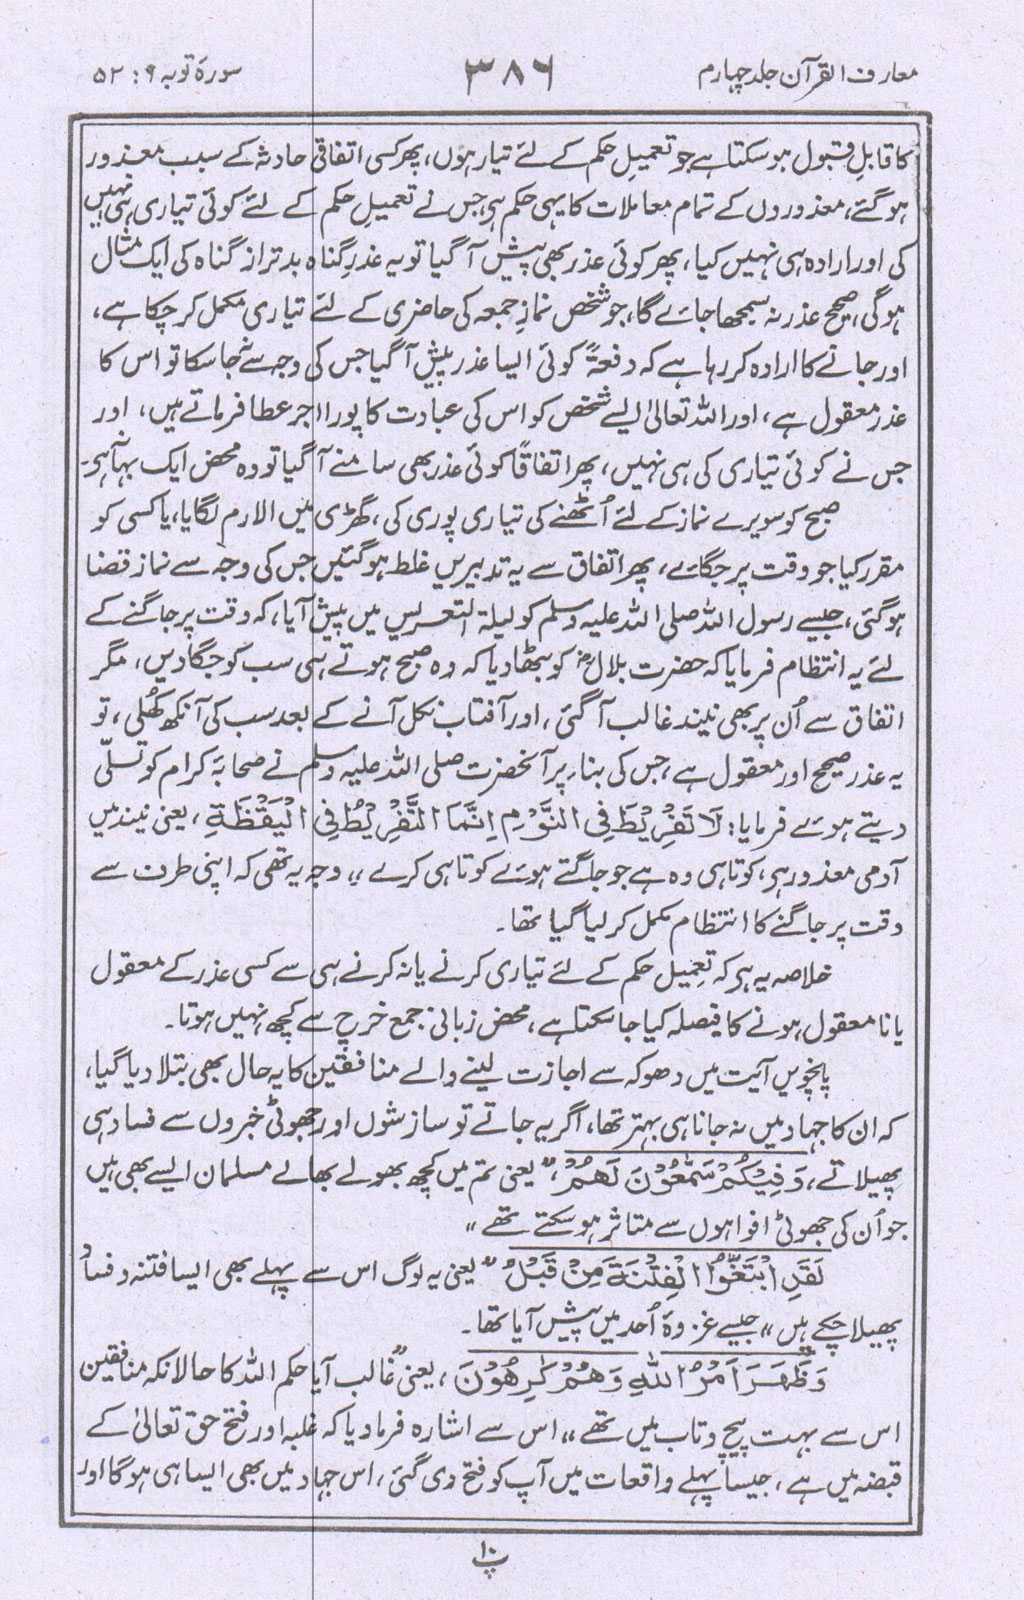 معارف القرآن جلد چہارم
۳۸۶
سورۃ توبہ ۹ : ۵۲
کا قابلِ قبول ہو سکتا ہے جو تعمیلِ حکم کے لئے تیار ہوں، پھر کسی اتفاقی حادثہ کے سبب معذور
ہو گئے، معذوروں کے تمام معاملات کا یہی حکم ہی، جس نے تعمیلِ حکم کے لئے کوئی تیاری ہی نہیں
کی اور ارادہ ہی نہیں کیا، پھر کوئی عذر بھی پیش آ گیا تو یہ عذرِ گناہ بدتر از گناہ کی ایک مثال
ہوگی، صحیح عذر نہ سمجھا جائے گا، جو شخص نمازِ جمعہ کی حاضری کے لئے تیاری مکمل کر چکا ہے،
اور جانے کا ارادہ کر رہا ہے کہ دفعۃً کوئی ایسا عذر پیش آ گیا جس کی وجہ سے نہ جا سکا تو اس کا
عذر معقول ہے، اور اللہ تعالیٰ ایسے شخص کو اس کی عبادت کا پورا اجر عطا فرماتے ہیں، اور
جس نے کوئی تیاری کی ہی نہیں، پھر اتفاقاً کوئی عذر بھی سامنے آ گیا تو وہ محض ایک بہانہ ہی۔
صبح کو سویرے نماز کے لئے اُٹھنے کی تیاری پوری کی، گھڑی میں الارم لگایا، یا کسی کو
مقرر کیا جو وقت پر جگائے، پھر اتفاق سے یہ تدبیریں غلط ہو گئیں جس کی وجہ سے نماز قضا
ہو گئی، جیسے رسول اللہ صلی اللہ علیہ وسلم کو لیلۃ التعریس میں پیش آیا، کہ وقت پر جاگنے کے
لئے یہ انتظام فرمایا کہ حضرت بلال رض کو بٹھا دیا کہ وہ صبح ہوتے ہی سب کو جگا دیں، مگر
اتفاق سے اُن پر بھی نیند غالب آ گئی، اور آفتاب نکل آنے کے بعد سب کی آنکھ کھُلی، تو
یہ عذر صحیح اور معقول ہے، جس کی بناء پر آنحضرت صلی اللہ علیہ وسلم نے صحابۂ کرام کو تسلّی
دیتے ہوئے فرمایا: لَا تَفْرِيْطَ فِی النَّوْمِ اِنَّمَا التَّفْرِيْطُ فِی الْيَقْظَةِ، یعنی نیند میں
آدمی معذور ہی، کوتاہی وہ ہے جو جاگتے ہوئے کوتاہی کرے ،، وجہ یہ تھی کہ اپنی طرف سے
وقت پر جاگنے کا انتظام مکمل کر لیا گیا تھا۔
خلاصہ یہ ہی کہ تعمیلِ حکم کے لئے تیاری کرنے یا نہ کرنے ہی سے کسی عذر کے معقول
یا نا معقول ہونے کا فیصلہ کیا جا سکتا ہے، محض زبانی جمع خرچ سے کچھ نہیں ہوتا۔
پانچویں آیت میں دھوکہ سے اجازت لینے والے منافقین کا یہ حال بھی بتلا دیا گیا،
کہ ان کا جہاد میں نہ جانا ہی بہتر تھا، اگر یہ جاتے تو سازشوں اور جھوٹی خبروں سے فساد ہی
پھیلاتے، وَفِيْكُمْ سَمّٰعُوْنَ لَهُمْ، ”یعنی تم میں کچھ بھولے بھالے مسلمان ایسے بھی ہیں
جو اُن کی جھوٹی افواہوں سے متاثر ہو سکتے تھے“
لَقَدِ ابْتَغَوُا الْفِتْنَةَ مِنْ قَبْلُ ”یعنی یہ لوگ اس سے پہلے بھی ایسا فتنہ و فساد
پھیلا چکے ہیں“ جیسے غزوۂ اُحد میں پیش آیا تھا۔
وَظَهَرَ اَمْرُ اللهِ وَهُمْ كٰرِهُوْنَ، یعنی ”غالب آیا حکم اللہ کا حالانکہ منافقین
اس سے بہت پیچ و تاب میں تھے“ اس سے اشارہ فرما دیا کہ غلبہ اور فتح حق تعالیٰ کے
قبضہ میں ہے، جیسا پہلے واقعات میں آپ کو فتح دی گئی، اس جہاد میں بھی ایسا ہی ہوگا اور